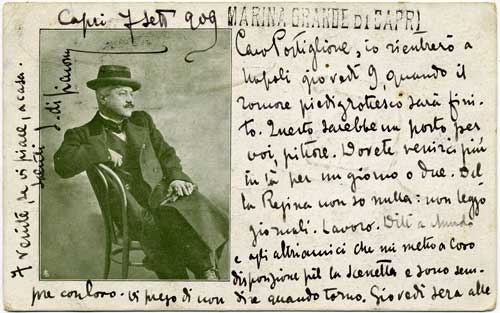 Capri 7 sett 909
MARINA GRANDE DI CAPRI
Caro Postiglione, io rientrerò a
Napoli giovedì 9, quando il
romore piedigrottesco sarà fini-
to. Questo sarebbe un posto, per
voi, pittore. Dovete venirci più
in là per un giorno o due. Del
la Regina non so nulla: non leggo
giornali. Lavoro. Dite a
e agli altri amici che mi metto a loro
disposizione per la scenetta e sono sem-
pre con loro. Vi prego di non dire quando torno. Giovedì sera alle
7 venite, se vi piace, a casa.
S. di Giacomo